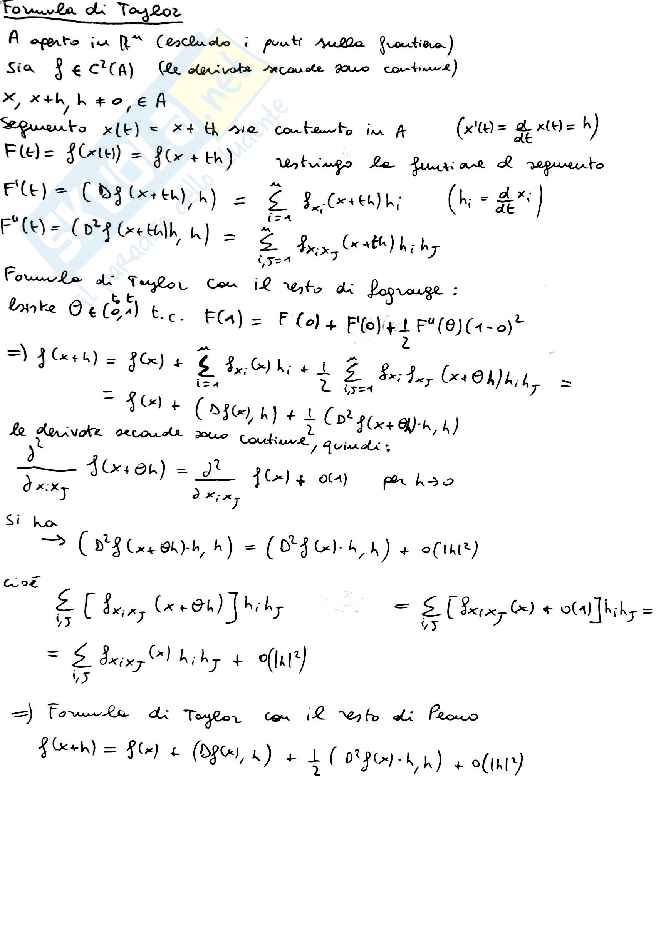 Formula di Taylor
A aperto in ℝⁿ (escludo i punti sulla frontiera)
Sia f ∈ C²(A) (le derivate seconde sono continue)
x, x+h, h ≠ 0, ∈ A
Segmento x(t) = x + th sia contenuto in A (x'(t) = d/dt x(t) = h)
F(t) = f(x(t)) = f(x + th) restringo la funzione al segmento
F'(t) = (Df(x+th), h) = Σ_{i=1}^{n} f_{xi}(x+th) hi (hi = d/dt xi)
F''(t) = (D²f(x+th)h, h) = Σ_{i,j=1}^{n} f_{xixj}(x+th) hi hj
Formula di Taylor con il resto di Lagrange:
Esiste θ ∈ (0,1) t.c. F(1) = F(0) + F'(0) + 1/2 F''(θ)(1-0)²
=) f(x+h) = f(x) + Σ_{i=1}^{n} f_{xi}(x) hi + 1/2 Σ_{i,j=1}^{n} f_{xi} f_{xj} (x+θh) hi hj =
= f(x) + (Df(x), h) + 1/2 (D²f(x+θh)·h, h)
le derivate seconde sono continue, quindi:
∂²/∂xixj f(x+θh) = ∂²/∂xixj f(x) + o(1) per h→0
Si ha
→ (D²f(x+θh)·h, h) = (D²f(x)·h, h) + o(|h|²)
cioè
Σ_{i,j} [f_{xixj}(x+θh)] hi hj = Σ_{i,j} [f_{xixj}(x) + o(1)] hi hj =
= Σ_{i,j} f_{xixj}(x) hi hj + o(|h|²)
=) Formula di Taylor con il resto di Peano
f(x+h) = f(x) + (Df(x), h) + 1/2 (D²f(x)·h, h) + o(|h|²)